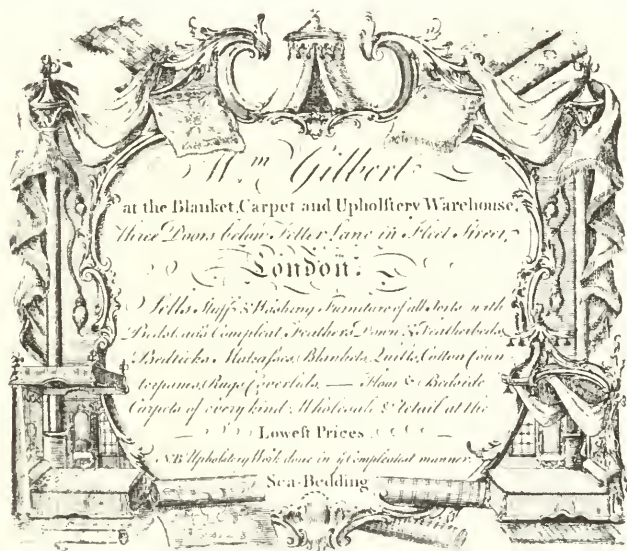 Wm Gilbert
at the Blanket, Carpet and Upholſtery Warehouse,
three Doors below Fetter Lane in Fleet Street,
London.
Sells Stuff & Washing Furniture of all Sorts with
Bedsteads Compleat Feathers Down & Featherbeds,
Bedticks Matraſſes, Blankets, Quilts, Cotton Coun
terpanes, Rugs Coverlids, — Floor & Bedside
Carpets of every kind Wholesale & Retail at the
Loweſt Prices
NB Upholstery Work done in ye Compleatest manner.
Sea-Bedding